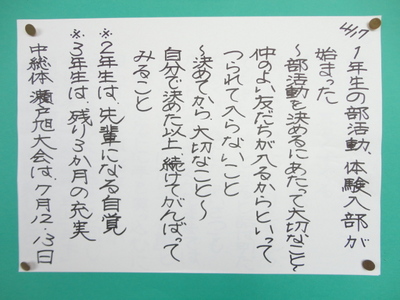 4/17
1年生の部活動、体験入部が
始まった
～部活動を決めるにあたって大切なこと～
仲のよい友だちが入るからといって
つられて入らないこと
～決めてから、大切なこと～
自分で決めた以上、続けてがんばって
みること
※2年生は、先輩になる自覚
※3年生は、残り3か月の充実
中総体 瀬戸旭大会は、7月12.13日